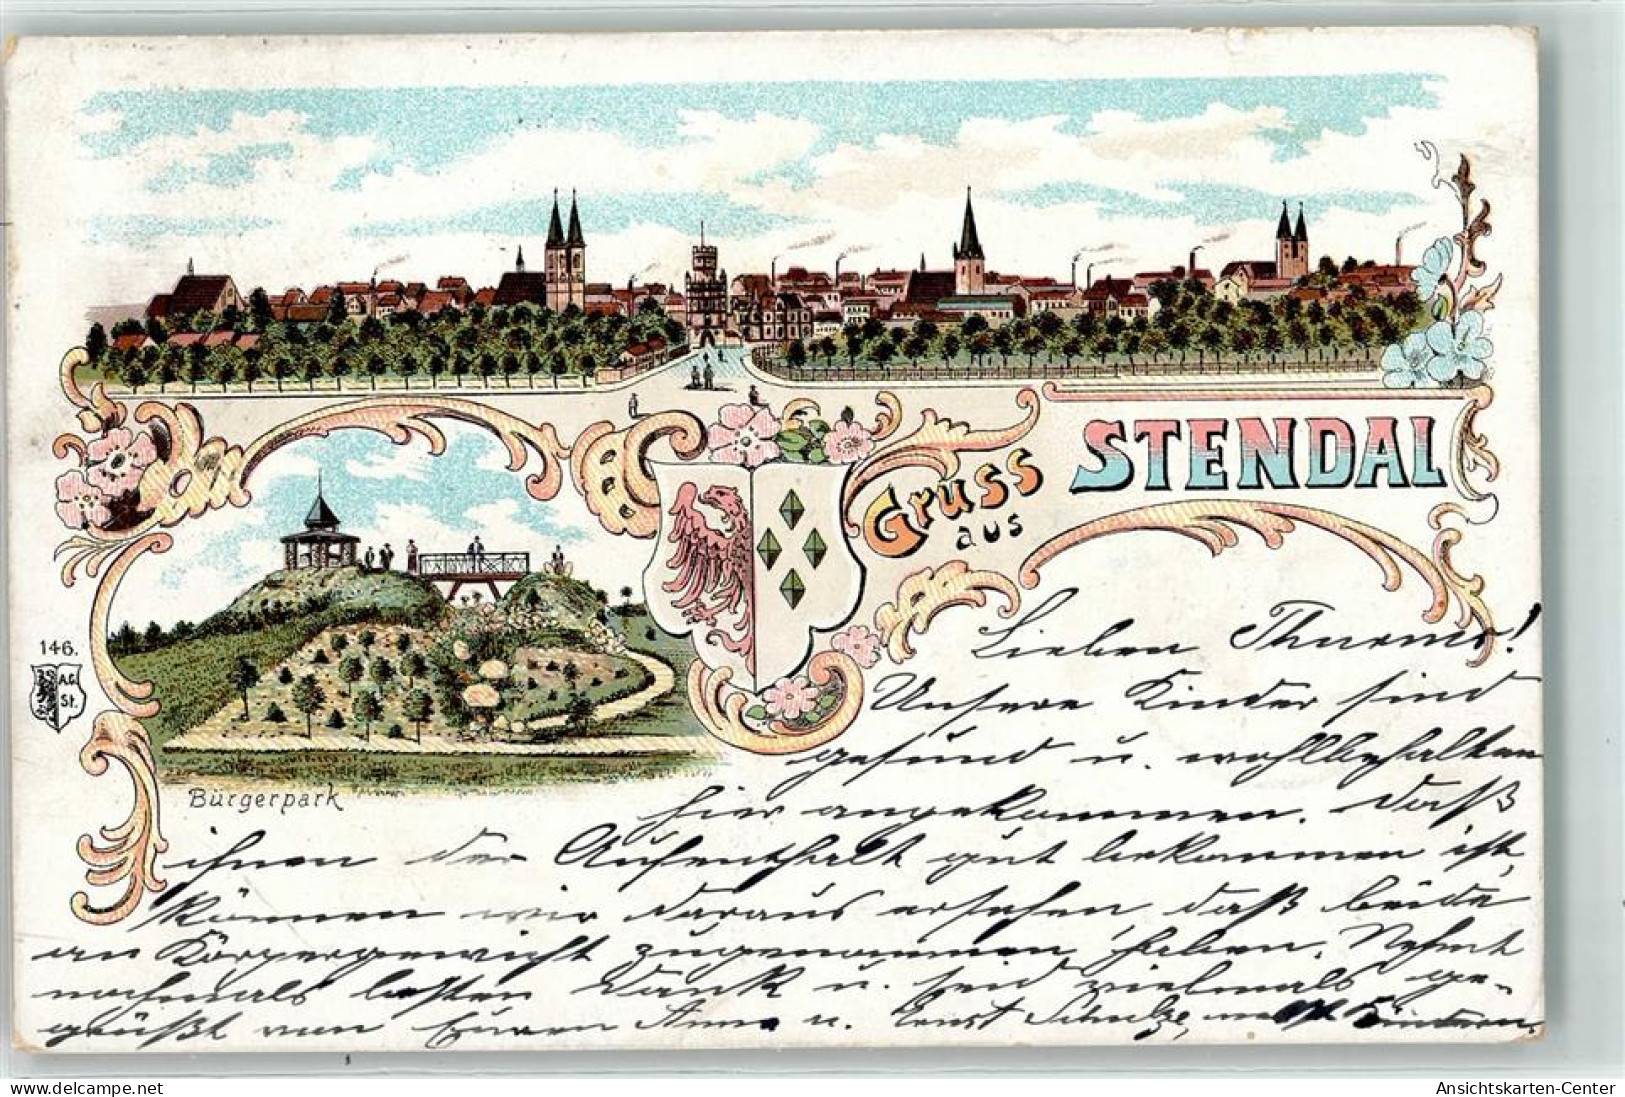 Gruss
aus
STENDAL
146.
A.G.
St.
Bürgerpark
Lieben Thurms!
Unsere Kinder sind
gesund u. wohlbehalten
hier angekommen. Daß
ihnen der Aufenthalt gut bekommen ist,
können wir daraus ersehen daß beide
an Körpergewicht zugenommen haben. Nehmt
nochmals besten Dank u. seid vielmals ge-
grüßt von Euren Anna u. Ernst Schulze, Kindern.
Ansichtskarten-Center